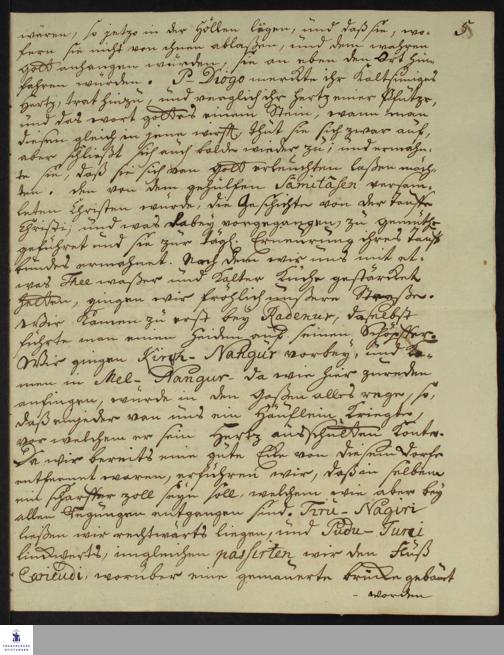 5
wären, so jetzo in der Höllen lägen, und daß sie, wo-
fern sie nicht von ihnen ablaßen, und dem wahren
Gott anhangen würden, sie an eben den Ort hin
fahren würden. P. Diogo merckte ihr kaltsinniges
Hertz, trat hinzu, und verglich ihr Hertz einer Pfütze,
und das Wort Gottes einem Stein, wann man
diesen gleich in jene wirft, thut sie sich zwar auf,
aber schließt sich auch balde wieder zu; und ermahn-
te sie, daß sie sich von Gott erleuchten laßen möch-
ten. den von dem Gehülfen Samidásen versam-
leten Christen wurde, die Geschichte von der Tauffe
Christi, und was dabey vorgegangen, zu gemüthe
geführet und sie zur tägl. Erneurung ihres Tauf
bundes ermahnet. Nach dem wir uns mit et-
was Thee waßer und kalter Küche gestärcket
hatten, gingen wir fröhlich unsere Straße.
Wir kamen zu erst bey Radenur, daselbst
führte man einen Heiden auf seinen Schöpffer.
Wir gingen Kirch-Nangur vorbey, und ka-
men in Mel-Nangur. da wir hier zureden
anfingen, wurde in den Gaßen alles rege, so,
daß einjeder von uns ein Häuflein kriegte,
vor welchem er sein Hertz ausschütten konte.
Da wir bereits eine gute Ecke von diesem Dorfe
entfernet waren, erfuhren wir, daß in selbem
ein scharffer Zoll seyn soll, welchem wir aber bey
allen entgangen sind. Tiru-Nagiri
ließen wir rechtwärts liegen, und Pudu-Turei
linckwerts, imgleichen passirten wir den Fluß
Caweudi, worüber eine gemauerte Brücke gebauet
- worden
FRANCKESCHE
STIFTUNGEN